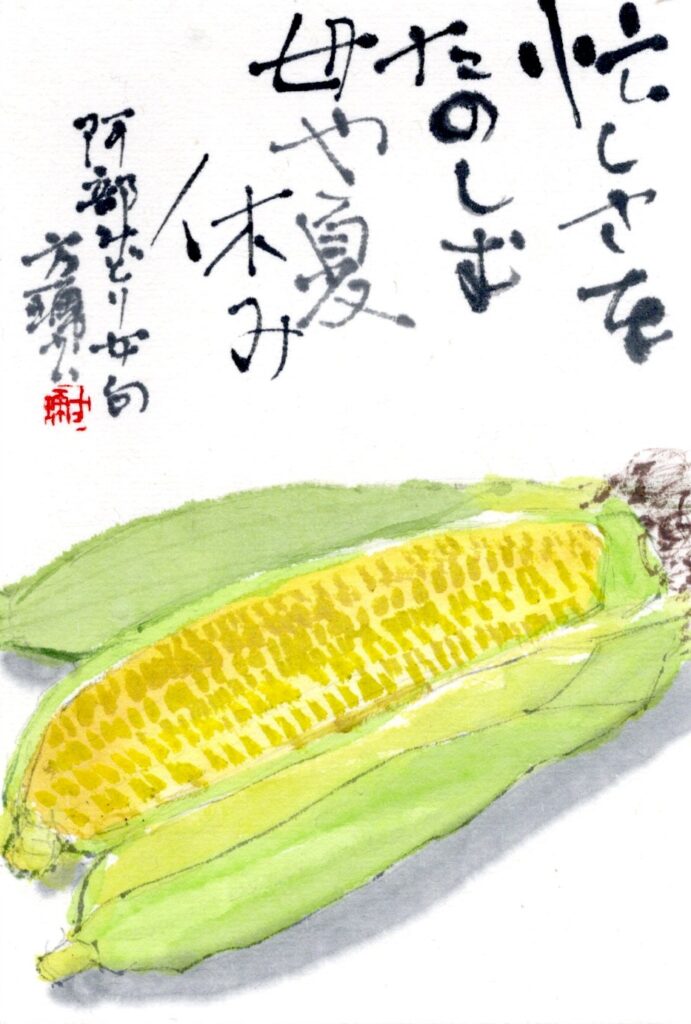 忙しさを
たのしむ
母や夏
休み
阿部みどり女句